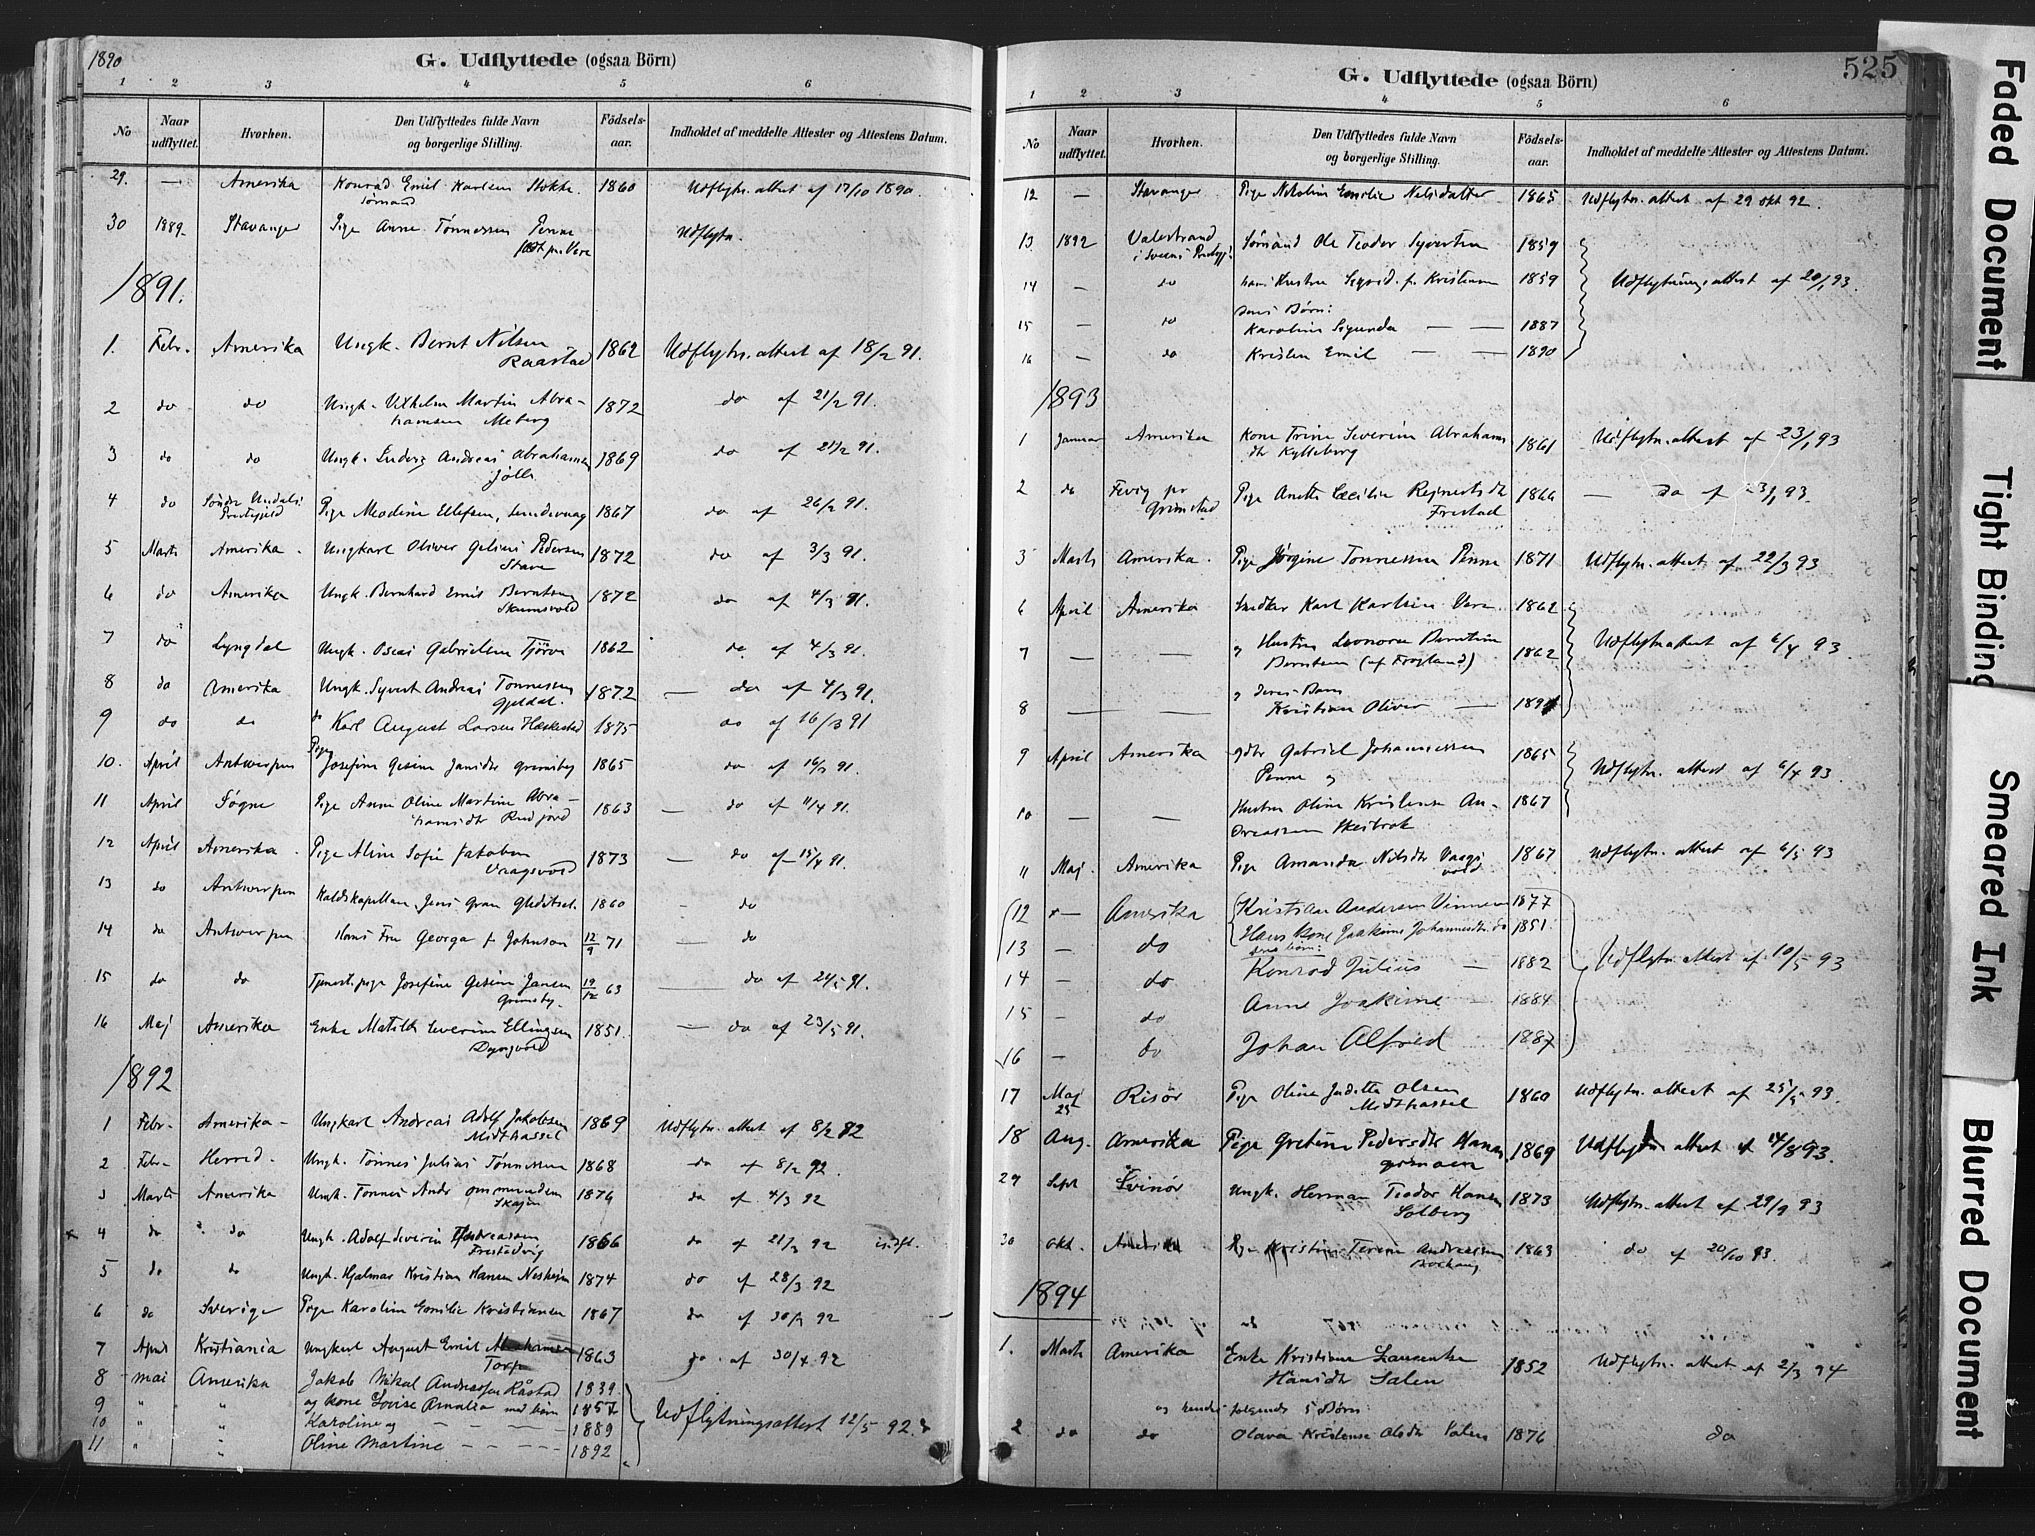 1890
G. Udflyttede (ogsaa Börn)
1 2 3 4 5 6
No Naar udflyttet. Hvorhen. Den Udflyttedes fulde Navn og borgerlige Stilling. Födsels-aar. Indholdet af meddelte Attester og Attestens Datum.
29. — Amerika Konrad Emil Karlsen Stokke 1860 Udflytn. attest af 17/10 1890
Sømand
30 1889 Stavanger Pige Anne Tønnessen Penne Udflytn.
1891.
1. Febr. Amerika Ungk. Bernt Nilsen 1862 Udflytn. attest af 18/2 91.
Raastad
2 do do Ungk. Vilhelm Martin Abra- 1872 do af 21/2 91.
hamsen Meberg
3 do do Ungk. Ludvig Andreas Abrahamsen 1869 do af 21/2 91.
Jølle
4 do Søndre Undals Pige Meodine Ellefsen, 1867 do af 26/2 91.
Prestegjeld
5 Marts Amerika. Ungkarl Oliver Gelius Pedersen 1872 do af 3/3 91.
Stave
6 do Amerika Ungk. Bernhard Emil Berntsen 1872 do af 4/3 91.
Skumsvold
7 do Lyngdal Ungk. Oscar Gabrielsen Tjörve 1862 do. af 4/3 91.
8 do Amerika Ungk. Syvert Andreas Tønnessen 1872 — do af 4/3 91.
Gjeldal
9 do do do Karl August Larsen Haskestad 1875 do af 16/3 91
10. April Antwerpen Pige Josefine Gesine Jansdtr Grimsby 1865 do af 16/3 91.
11 April Søgne Pige Anne Oline Martine Abra- 1863 — do af 11/4 91.
hamsdtr Rudjord
12 April Amerika. Pige Aline Sofie Jakobsen 1873 — do af 15/4 91.
Vragsvold
13 do Antwerpen Kaldskapellan Jens Gran Gleditsch. 1860 - do
14 do Antwerpen Hans Fru Georga f Johnson 12/9 71 — do
15 do do Tjenest. pige Josefine Gesine Jansen 19/12 63 — do af 24/5 91.
Grimsby.
16 Maj Amerika Enke Matilde Severine Ellingsen 1851. — do af 23/5 91.
Dyngvold
1892
1 Febr. Amerika- Ungkarl Andreas Adolf Jakobsen 1869 Udflytn. attest af 8/2 82
Midthassel
2 Febr. Herred. Ungk. Tönnes Julius Tönnessen 1868 do af 8/2 92.
3 Marts Amerika Ungk. Tonnes Andr Ommundsen 1876 do af 4/3 92
Skajen
x 4 do do Ungk. Adolf Severin Andreassen 1866 do af 21/3 92
Frestadvig
5 do do Ungk. Hjalmar Kristian Hansen Neshejm 1874 do af 28/3 92
6 do Sverige Pige Karoline Emilie Kristiansen 1867 do af 30/3 92
7 April Kristiania Ungkarl August Emil Abrahamsen 1863 do. af 30/4 92
Torp
8 mai Amerika Jakob Mikal Andreassen Råstad 1839.
9 " " og kone Lovise Amalia med børn 1857 Udflytningsattest 12/5 92.
10 " " Karoline og - - - - 1889
11 " " Oline Martine - - - - 1892
525
G. Udflyttede (ogsaa Börn)
1 2 3 4 5 6
No Naar udflyttet. Hvorhen. Den Udflyttedes fulde Navn og borgerlige Stilling. Födsels-aar. Indholdet af meddelte Attester og Attestens Datum.
12 — Stavanger Pige Nikoline Emilie Nilsdatter 1865 Udflytn. attest af 29 okt 92.
13 1892 Valestrand Sømand Ole Teodor Syvertsen 1859
i Sveens Prestgj.
14 — do hans Hustru Sigrid f. Kristensen 1859 Udflytningsattest af 20/1 93.
deres Børn:
15 — do Karoline Sigunda — — 1887
16 — do Kristen Emil — — 1890
1893
1 Januar Amerika Kone Trine Severine Abrahams 1861 Udflytn. attest af 23/1 93
dtr Kylleberg
2 do Fevig pr Pige Anette Cecilie Rejnertsdtr 1866 — do af 23/1 93.
Grimstad Frestad
3 Marts Amerika. Pige Jørgine Tonnessen Penne 1871 Udflytn. attest af 22/3 93
6 April Amerika Snedker Karl Karlsen Vere 1862
7 — — og Hustru Leonora Berntine 1862 Udflytn attest af 6/4 93.
Berntsen (af Frøyland)
og deres Barn
8 — — Kristian Oliver — 1891
9 April Amerika Gabriel Johannessen 1865 Udflytn. attest af 6/4 93.
Penne og
10 — — Hustru Oline Kristense An- 1867
dreassen Skeibrok
11 Maj. Amerika Pige Amanda Nilsdtr Vaags 1867 Udflytn. attest af 6/5 93
vold
12 — Amerika Kristian Andersen Vinnes 1877
13 — do Hans Kone Joakime Johannesdtr. do 1851.
deres børn:
14 — do Konrad Julius — 1882 Udflytn. attest af 10/5 93
15 — do Anne Joakime — 1884
16 — do Johan Alfred 1887
17 Maj 25 Risör Pige Oline Juditte Olsen 1860 Udflytn. attest af 25/5 93.
Midthassel
18 Aug. Amerika Pige Gretine Pedersdtr Hananger 1869 Udflytn attest af 14/8 93.
29 Sept Svinör Ungk. Herman Teodor Hansen 1873 Udflytn. attest af 29/9 93
Solberg
30 Okt. Amerika Pige Kristine Terese Andreassen 1863 do af 20/10 93
1894
1. Marts Amerika Enke Kristiane Laurentse 1852 Udflytn. attest af 2/3 94
Hansdtr Salen
og hendes følgende 5 Børn:
2 do do Olava Kristense Olsdtr Salen 1876 do
Faded Document
Tight Binding
Smeared Ink
Blurred Document